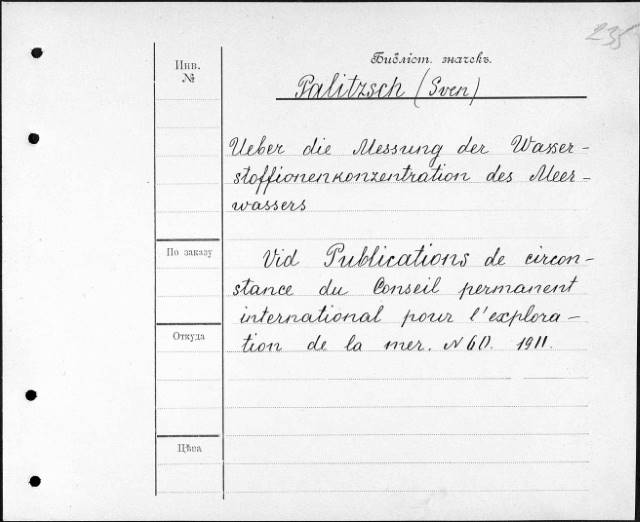 235
Библіот. значекъ.
Инв.
№
Palitzsch (Sven)
Ueber die Messung der Wasser-
stoffionenkonzentration des Meer-
wassers
По заказу
Vid Publications de circon-
stance du Conseil permanent
international pour l'explora-
tion de la mer. N 60. 1911.
Откуда
Цѣна